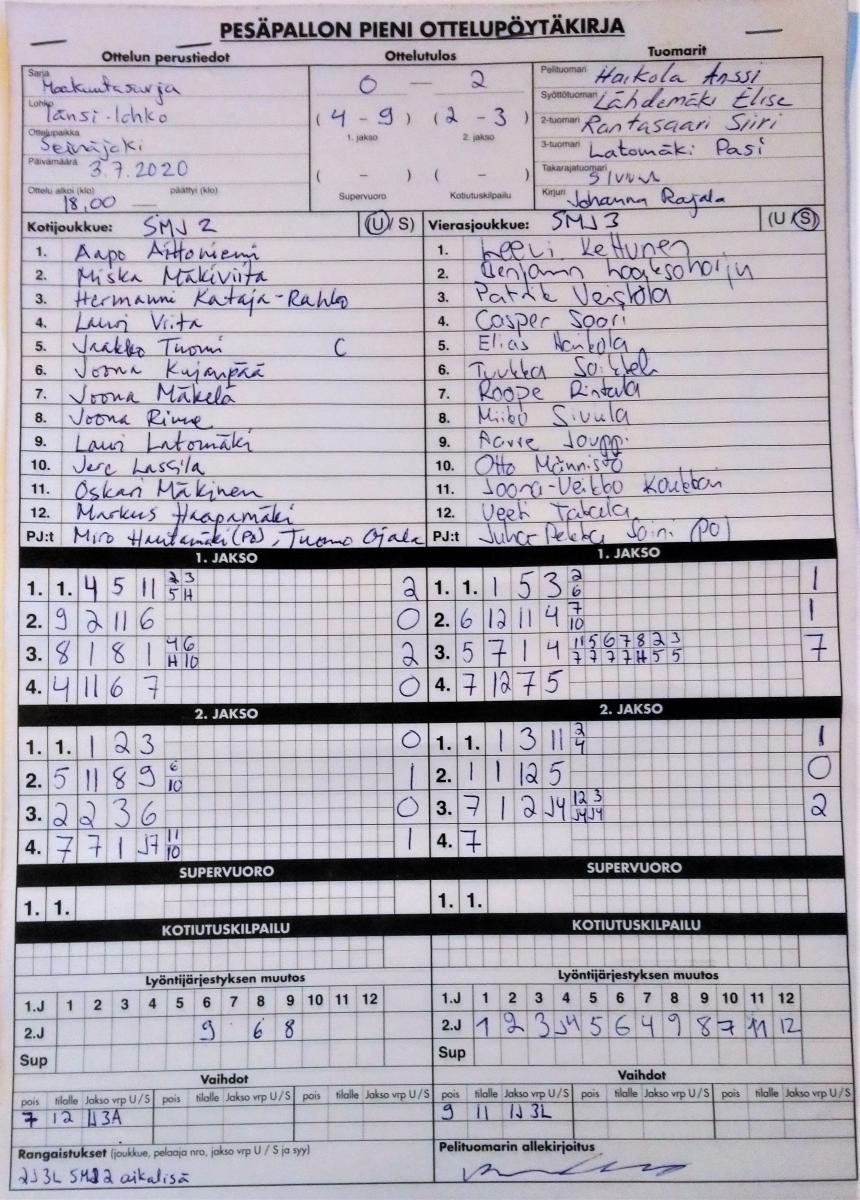 PESÄPALLON PIENI OTTELUPÖYTÄKIRJA
Ottelun perustiedot Ottelutulos Tuomarit
Sarja Maakuntasarja
Lohko Länsi-lohko
Ottelupaikka Seinäjoki
Päivämäärä 3.7.2020
Ottelu alkoi (klo) päättyi (klo)
18,00 —
0 — 2
(4 - 9) (2 - 3)
1. jakso 2. jakso
( - ) ( - )
Supervuoro Kotiutuskilpailu
Pelituomari Haikola Anssi
Syöttötuomari Lähdemäki Elise
2-tuomari Rantasaari Siiri
3-tuomari Latomäki Pasi
Takarajatuomari
Kirjuri Johanna Rajala
Kotijoukkue: SMJ 2 (U / S)
1. Aapo
2. Miska Mäkiviita
3. Hermanni Kataja-Rahko
4. Lauri Viita
5. Jaakko Tuomi C
6. Joona Kujanpää
7. Joona Mäkelä
8. Joona
9. Lauri Latomäki
10. Jere Lassila
11. Oskari Mäkinen
12. Markus Haapamäki
PJ:t Miro Hautamäki (PJ), Tuomo Ojala
Vierasjoukkue: SMJ 3 (U / S)
1. Leevi Kettunen
2. Benjamin Laaksoharju
3. Patrik
4. Casper Soori
5. Elias Haikola
6. Tuukka
7. Roope Rintala
8. Sivula
9. Aarre Jouppi
10. Otto Männistö
11. Joona-Veikko
12. Veeti
PJ:t Juha Pekka Soini (PJ)
1. JAKSO
1. 1. 4 5 11 2 3 2
5 H
2. 9 2 11 6 0
3. 8 1 8 1 4 6 2
H 10
4. 4 11 6 7 0
1. JAKSO
1. 1. 1 5 3 2 1
6
2. 6 12 11 4 7 1
10
3. 5 7 1 4 11 5 6 7 8 2 3 7
7 7 7 7 H 5 5
4. 7 12 7 5
2. JAKSO
1. 1. 1 2 3 0
2. 5 11 8 9 6 1
10
3. 2 2 3 6 0
4. 7 7 1 J7 11 1
10
2. JAKSO
1. 1. 1 3 11 2 1
4
2. 1 1 12 5 0
3. 7 1 2 J4 12 3 2
J4 J4
4. 7
SUPERVUORO
1. 1.
SUPERVUORO
1. 1.
KOTIUTUSKILPAILU
KOTIUTUSKILPAILU
Lyöntijärjestyksen muutos
1.J 1 2 3 4 5 6 7 8 9 10 11 12
2.J 9 6 8
Sup
Lyöntijärjestyksen muutos
1.J 1 2 3 4 5 6 7 8 9 10 11 12
2.J 1 2 3 J4 5 6 4 9 8 7 11 12
Sup
Vaihdot
pois tilalle Jakso vrp U / S pois tilalle Jakso vrp U / S pois tilalle Jakso vrp U / S
7 12 1J3A
Vaihdot
pois tilalle Jakso vrp U / S pois tilalle Jakso vrp U / S pois tilalle Jakso vrp U / S
9 11 1J3L
Rangaistukset (joukkue, pelaaja nro, jakso vrp U / S ja syy)
2J3L SMJ2 aikalisä
Pelituomarin allekirjoitus